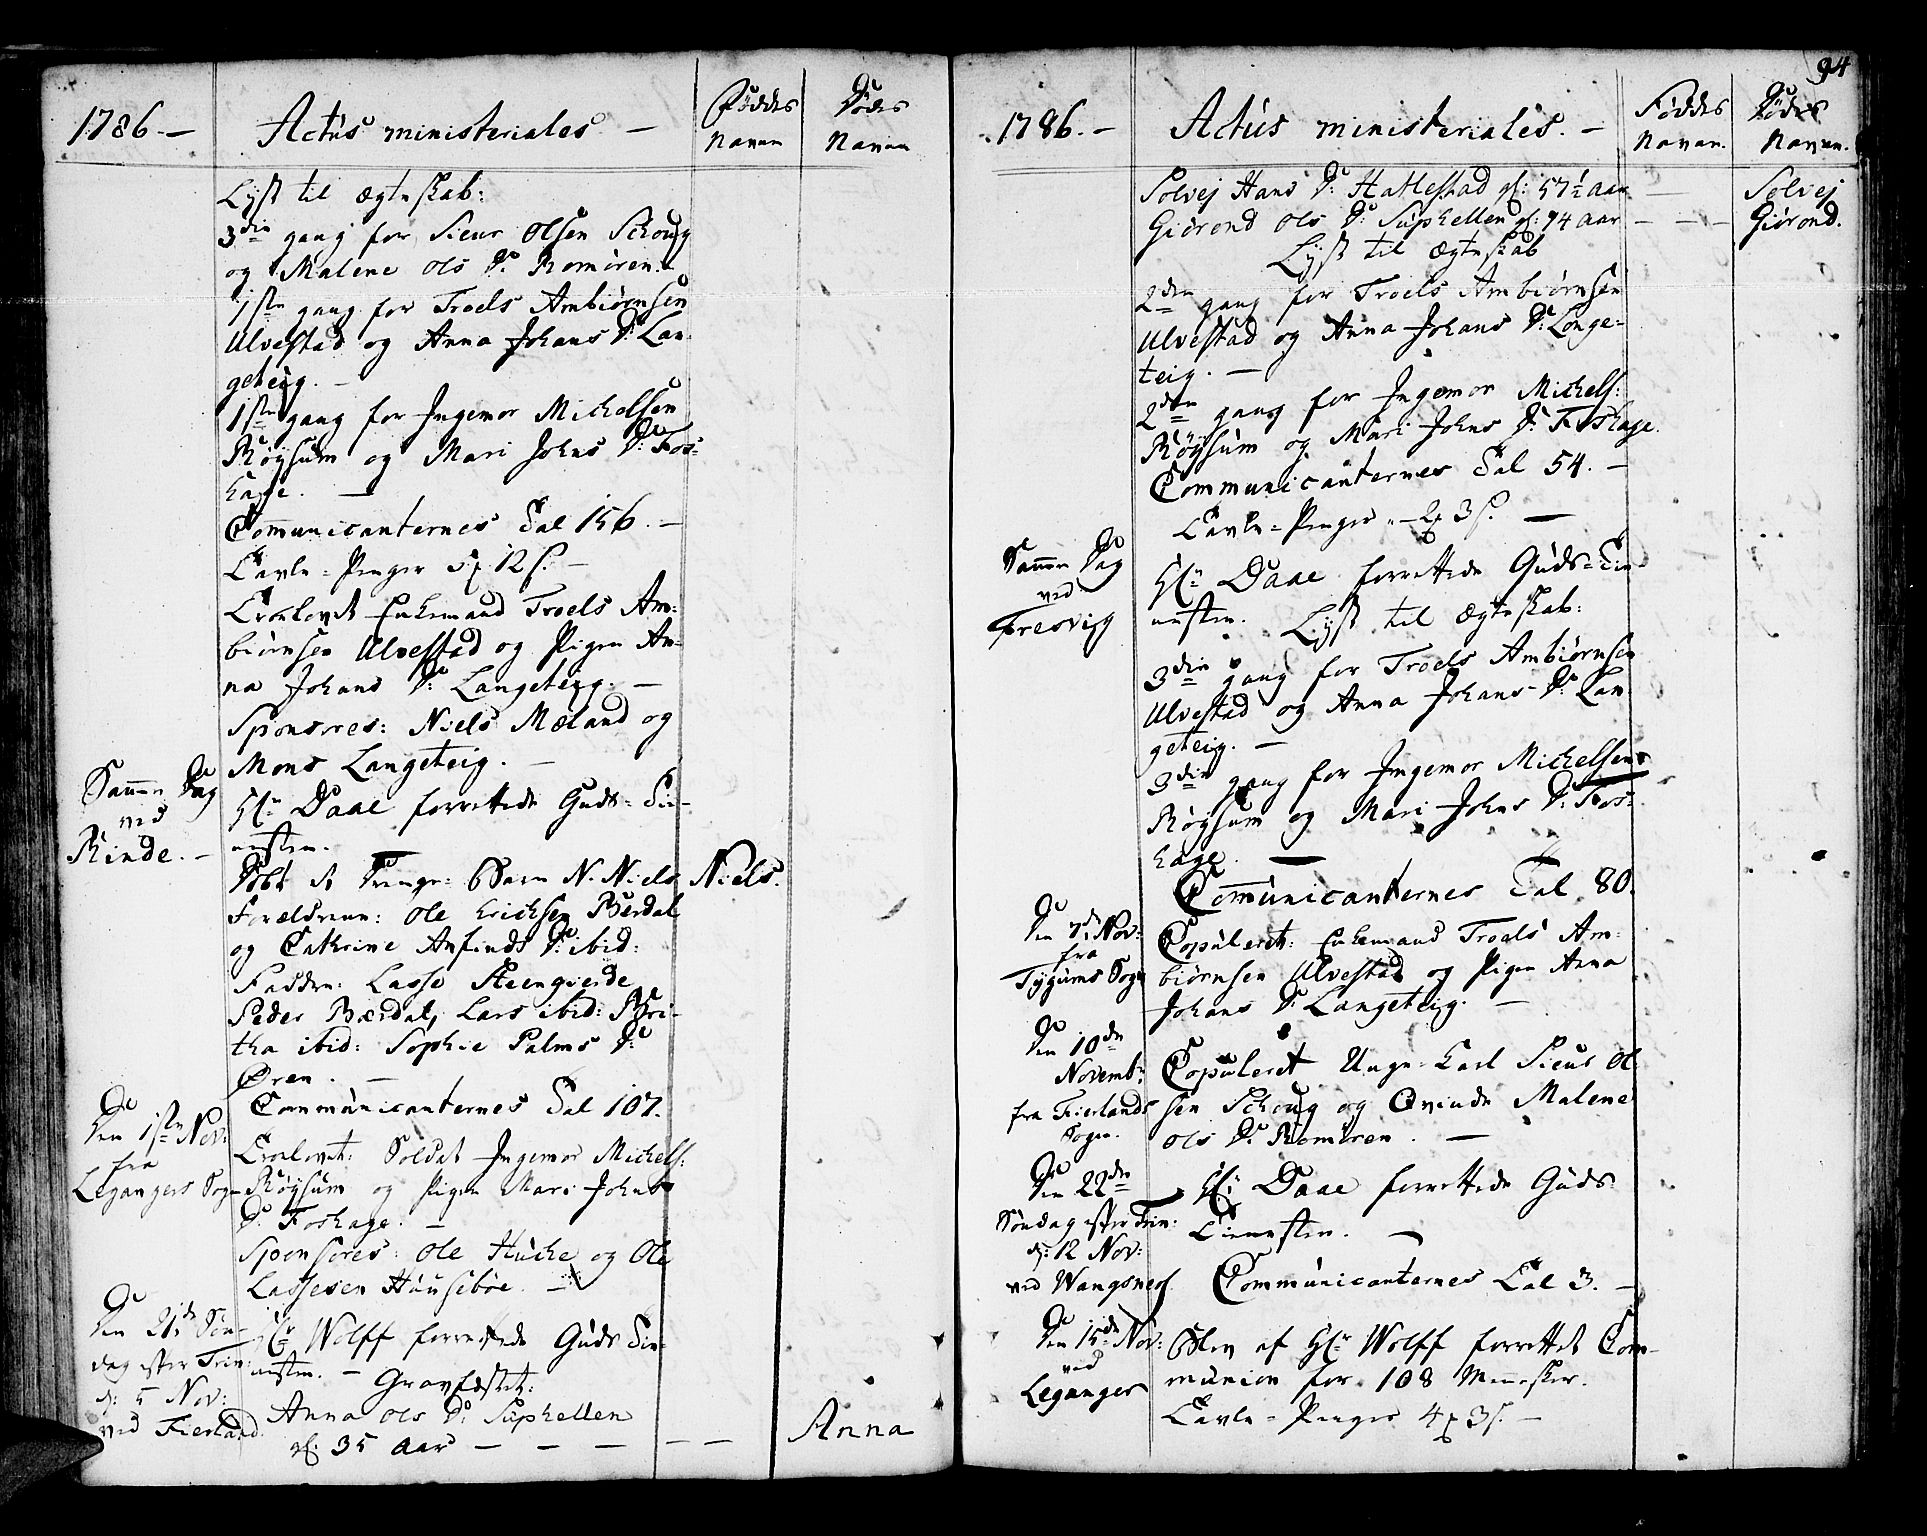 1786. —
Actus ministeriales. —
Føddes Navne
Dødes Navne
Lyst til ægteskab:
3die gang for Sieur Olsen Schoug
og Malene Ols D: Romøren. —
1ste gang for Troels Ambiørnsen
Ulvestad og Anna Johans D: Lan-
geteig. —
1ste gang for Ingemor Michelsen
Røysum og Mari Johns D: Fos-
hage. —
Communicanternes Tal 156. —
Tavle-Penger 5 12 s. —
Trolovet Enkemand Troels Am-
biørnsen Ulvestad og Pigen An-
na Johans D: Langeteig. —
Sponsores: Niels Mæland og
Mons Langeteig. —
Samme Dag
ved
Rinde. —
Hr Daae forrettede Guds-Tie-
nesten. —
Døbt et Drenge-Barn N. Niels
Niels.
Forældrene: Ole Erichsen Berdal
og Cathrine Anfinds D: ibid:
Faddere: Lasse Steengierde
Peder Bærdal, Lars ibid: Bri-
tha ibid: Sophie Palms D:
Øren. —
Communicanternes Tal 107.
Den 1ste Nov:
fra
Legangers Sogn
Trolovet: Soldat Ingemor Michels:
Røysum og Pigen Mari Johns
D: Foshage. —
Sponsores: Ole Huche og Ole
Lassesen Housebøe. —
Den 21de Søn-
dag efter Trin:
d: 5 Nov:
ved Fierland.
Hr Wolff forrettede Guds Tie-
nesten. — Gravfæstet:
Anna Ols D: Suphellen
gl: 35 Aar — — — — —
Anna
94
1786. —
Actus ministeriales. —
Føddes Navne.
Dødes Navne.
Solvej Hans D: Hatlestad gl: 57½ Aar —
Solvej
Giørond Ols D: Suphellen gl: 74 Aar — — —
Giørond.
Lyst til ægteskab
2den gang for Troels Ambiørnsen
Ulvestad og Anna Johans D: Lange-
teig. —
2den gang for Ingemor Michels:
Røysum og Mari Johns D: Foshage.
Communicanternes Tal 54. —
Tavle-Penger 2 3 s. —
Samme Dag
ved
Fresvig
Hr Daae forrettede Guds-Tie-
nesten.
Lyst til ægteskab:
3die gang for Troels Ambiørnsen
Ulvestad og Anna Johans D: Lan-
geteig. —
3die gang for Ingemor Michelsen
Røysum og Mari Johns D: Fos-
hage. —
Communicanternes Tal 80.
Den 7de Nov:
fra
Tygums Sogn
Copuleret: Enkemand Troels Am-
biørnsen Ulvestad og Pigen Anna
Johans D: Langeteig. —
Den 10de
Novemb:
fra Fierlands
Sogn.
Copuleret Unge-Karl Sieur Ol-
sen Schoug og Qvinde Malene
Ols D: Romøren. —
Den 22de
Søndag efter Trin:
d: 12 Nov:
ved Wangsnes
Hr Daae forrettede Guds
Tienesten. —
Communicanternes Tal 3. —
Den 15de Nov:
ved
Leganger
Blev af Hr Wolff forrettet Com-
munion for 108 Mennesker.
Tavle-Penger 4 3 s. —